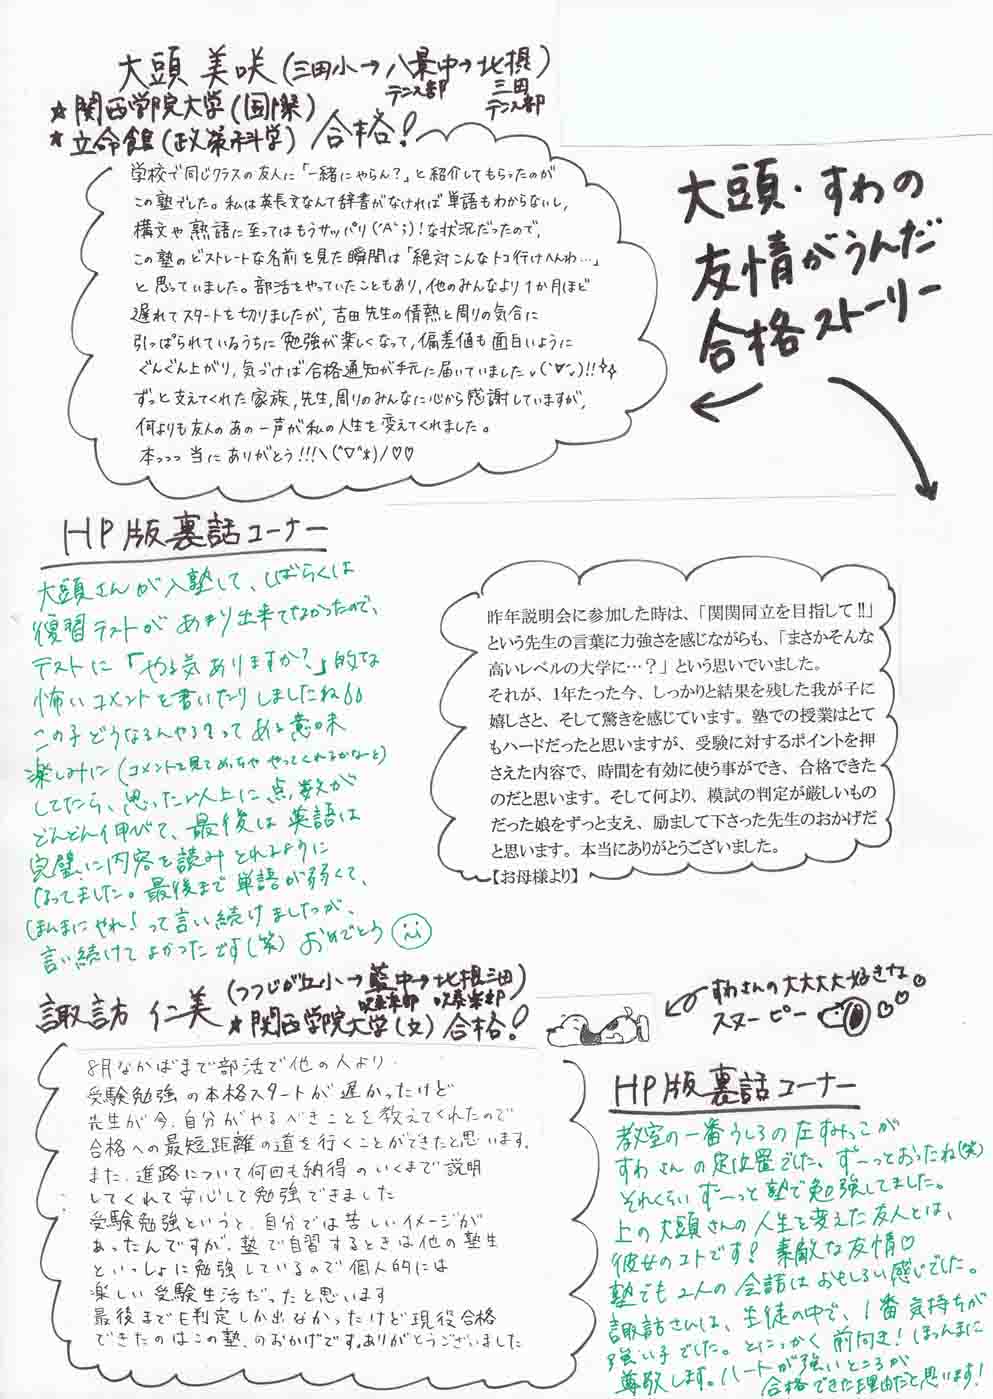 大頭 美咲(三田小→八景中→北摂三田)
テニス部 テニス部
☆関西学院大学(国際)
★立命館(政策科学) 合格!
学校で同じクラスの友人に「一緒にやらん?」と紹介してもらったのが
この塾でした。私は英長文なんて辞書がなければ単語もわからないし,
構文や熟語に至ってはもうサッパリ(´Д`;)!な状況だったので,
この塾のどストレートな名前を見た瞬間は「絶対こんなトコ行けへんわ…」
と思っていました。部活をやっていたこともあり,他のみんなより1か月ほど
遅れてスタートを切りましたが,吉田先生の情熱と周りの気合に
引っぱられているうちに勉強が楽しくなって,偏差値も面白いように
ぐんぐん上がり,気づけば合格通知が手元に届いていましたv(´▽`)!!
ずっと支えてくれた家族,先生,周りのみんなに心から感謝していますが,
何よりも友人のあの一声が私の人生を変えてくれました。
本っっっ当にありがとう!!!\(^▽^*)/♡♡
大頭・すわの
友情がうんだ
合格ストーリー
HP版裏話コーナー
大頭さんが入塾して、しばらくは
復習テストがあまり出来てなかったので、
テストに「やる気ありますか?」的な
怖いコメントを書いたりしましたね
この子どうなるんやろ?ってある意味
楽しみに(コメントを見てめっちゃやってくれるかなーと)
してたら、思った以上に点数が
どんどん伸びて、最後は英語は
完璧に内容を読みとれるように
なってました。最後まで単語が弱くて、
ほんまにやれ!って言い続けましたが、
言い続けてよかったです(笑) おめでとう
昨年説明会に参加した時は、「関関同立を目指して!!」
という先生の言葉に力強さを感じながらも、「まさかそんな
高いレベルの大学に…?」という思いでいました。
それが、1年たった今、しっかりと結果を残した我が子に
嬉しさと、そして驚きを感じています。塾での授業はとて
もハードだったと思いますが、受験に対するポイントを押
さえた内容で、時間を有効に使う事ができ、合格できた
のだと思います。そして何より、模試の判定が厳しいもの
だった娘をずっと支え、励まして下さった先生のおかげだ
と思います。本当にありがとうございました。
【お母様より】
諏訪 仁美(つつじが丘小→藍中→北摂三田)
吹奏楽部 吹奏楽部
★関西学院大学(文) 合格!
すわさんの大大大大好きな
スヌーピー
8月なかばまで部活で他の人より
受験勉強の本格スタートが遅かったけど
先生が今,自分がやるべきことを教えてくれたので
合格への最短距離の道を行くことができたと思います。
また,進路について何回も納得のいくまで説明
してくれて安心して勉強できました
受験勉強というと,自分では苦しいイメージが
あったんですが,塾で自習するときは他の塾生
といっしょに勉強しているので個人的には
楽しい受験生活だったと思います
最後までE判定しか出なかったけど現役合格
できたのはこの塾のおかげです。ありがとうございました
HP版裏話コーナー
教室の一番うしろの左すみっこが
すわさんの定位置でした、ずーっとおったね(笑)
それくらいずーっと塾で勉強してました。
上の大頭さんの人生を変えた友人とは、
彼女のコトです!素敵な友情♡
塾でも2人の会話はおもしろい感じでした。
諏訪さんは、生徒の中で、1番気持ちが
強い子でした。とにかく前向き!ほんまに
尊敬します。ハートが強いところが
合格できた理由だと思います!